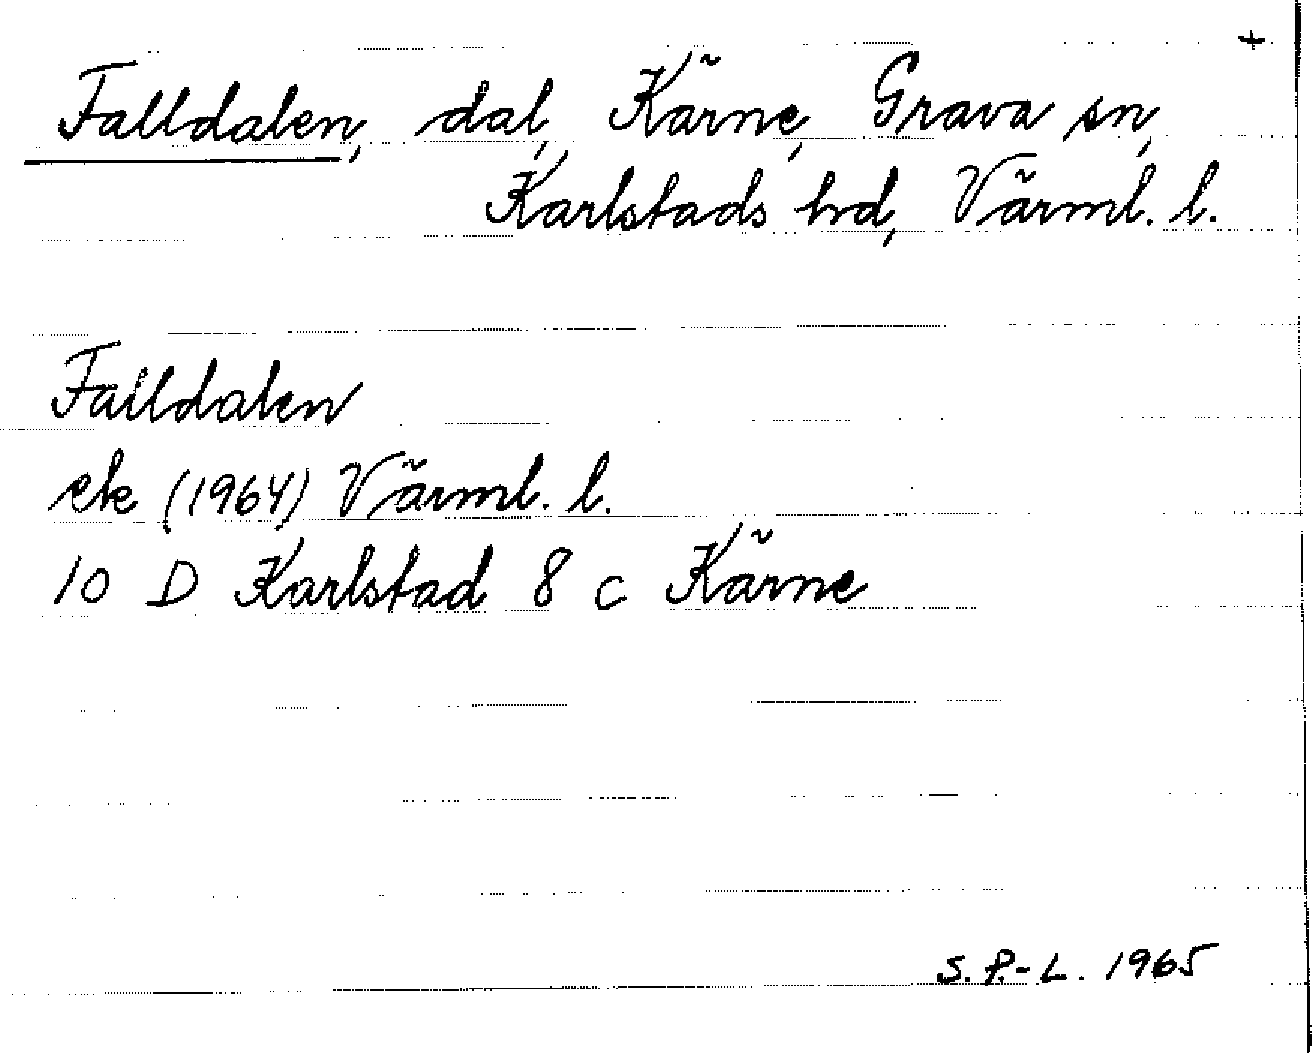 +
Falldalen, dal, Kärne, Grava sn,
Karlstads hd, Värml. l.
Falldalen
ek (1964) Värml. l.
10 D Karlstad 8 c Kärne
S. P.-L. 1965